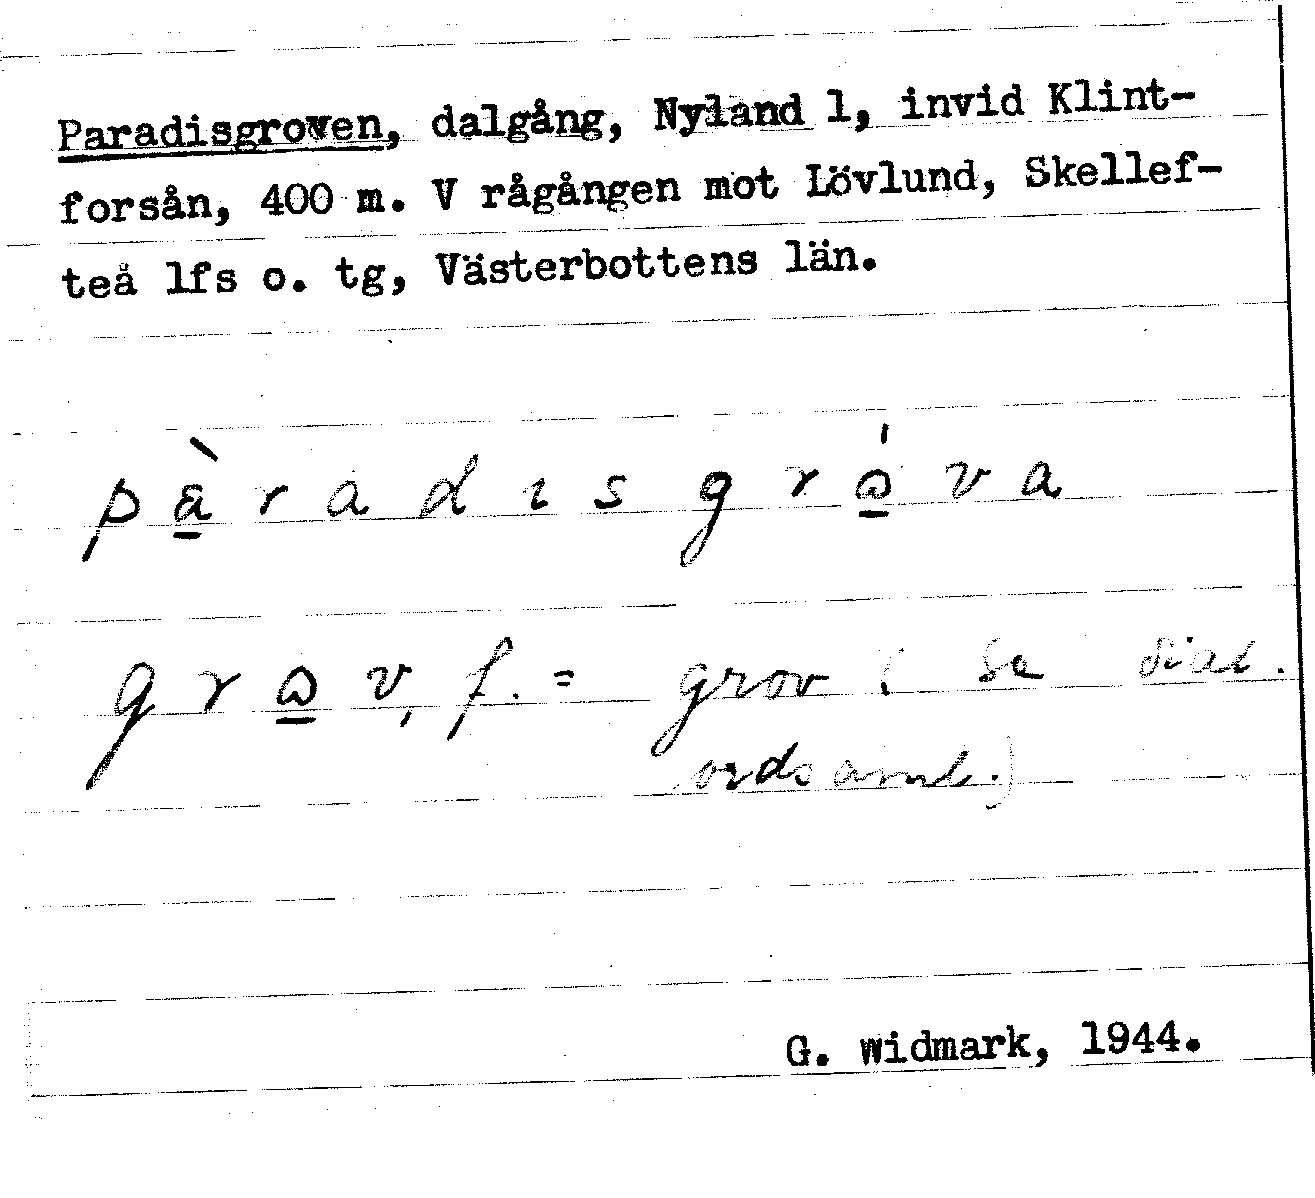 Paradisgroven, dalgång, Nyland 1, invid Klint-
forsån, 400 m. V rågången mot Lövlund, Skellef-
teå lfs o. tg, Västerbottens län.
pà̲radɩsgrɷ̲́va
grɷ̲v, f. = grov (se dial.
ordsaml.)
G. Widmark, 1944.